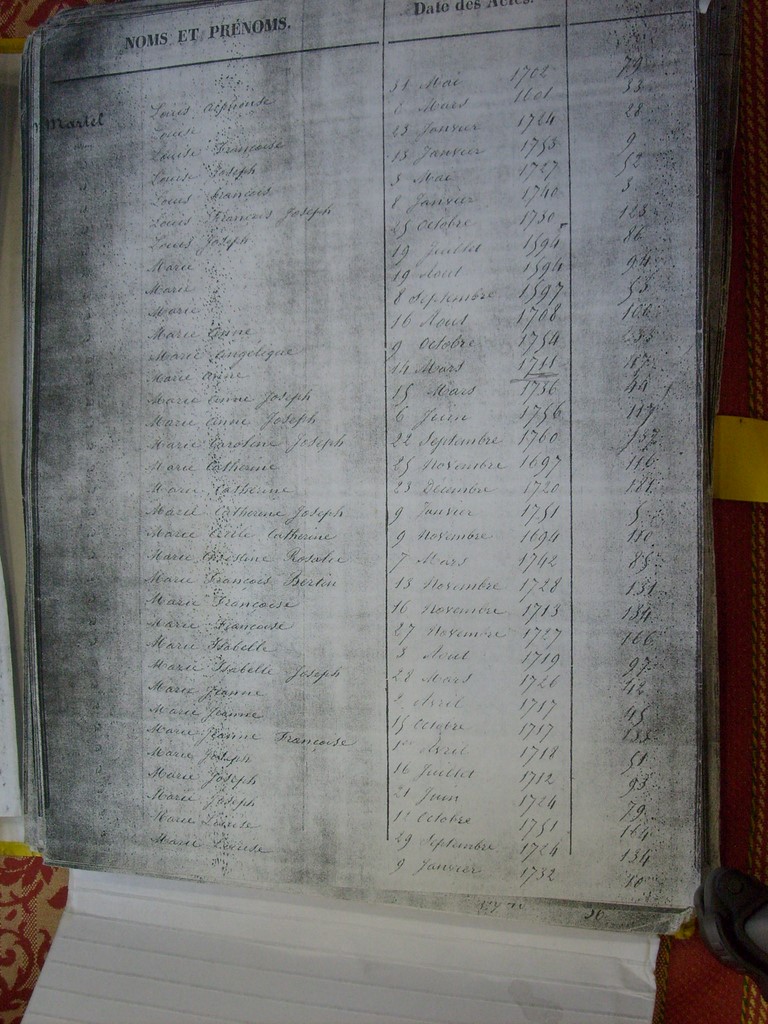 NOMS ET PRÉNOMS. Date des Actes.
Martel Louis Alphonse 31 Mai 1702 79
Louise 2 Mars 1601 53
Louise Françoise 23 Janvier 1764 28
Louise Joseph 13 Janvier 1753 9
Louis François 5 Mai 1727 52
Louis François Joseph 8 Janvier 1740 3
Louis Joseph 25 Octobre 1730 123
Marie 19 Juillet 1594 86
Marie 19 Aout 1594 94
Marie 8 Septembre 1597 53
Marie Anne 16 Aout 1708 106
Marie Angelique 9 Octobre 1754
Marie Anne 14 Mars 1711 107
Marie Anne Joseph 15 Mars 1736 44
Marie Anne Joseph 6 Juin 1756 117
Marie Caroline Joseph 22 Septembre 1760 132
Marie Catherine 25 Novembre 1697 116
Marie Catherine 23 Decembre 1720 181
Marie Catherine Joseph 9 Janvier 1751 5
Marie Cecile Catherine 9 Novembre 1694 110
Marie Christine Rosalie 7 Mars 1742 85
Marie François Bertin 13 Novembre 1728 131
Marie Françoise 16 Novembre 1713 134
Marie Françoise 27 Novembre 1727 166
Marie Isabelle 3 Aout 1719 97
Marie Isabelle Joseph 28 Mars 1726 42
Marie Jeanne 2 Avril 1717 45
Marie Jeanne 15 Octobre 1717 133
Marie Jeanne Francoise 1er Avril 1718 51
Marie Joseph 16 Juillet 1712 93
Marie Joseph 21 Juin 1724 79
Marie Joseph 1er Octobre 1751 164
Marie Louise 29 Septembre 1724 134
Marie Louise 9 Janvier 1732 10